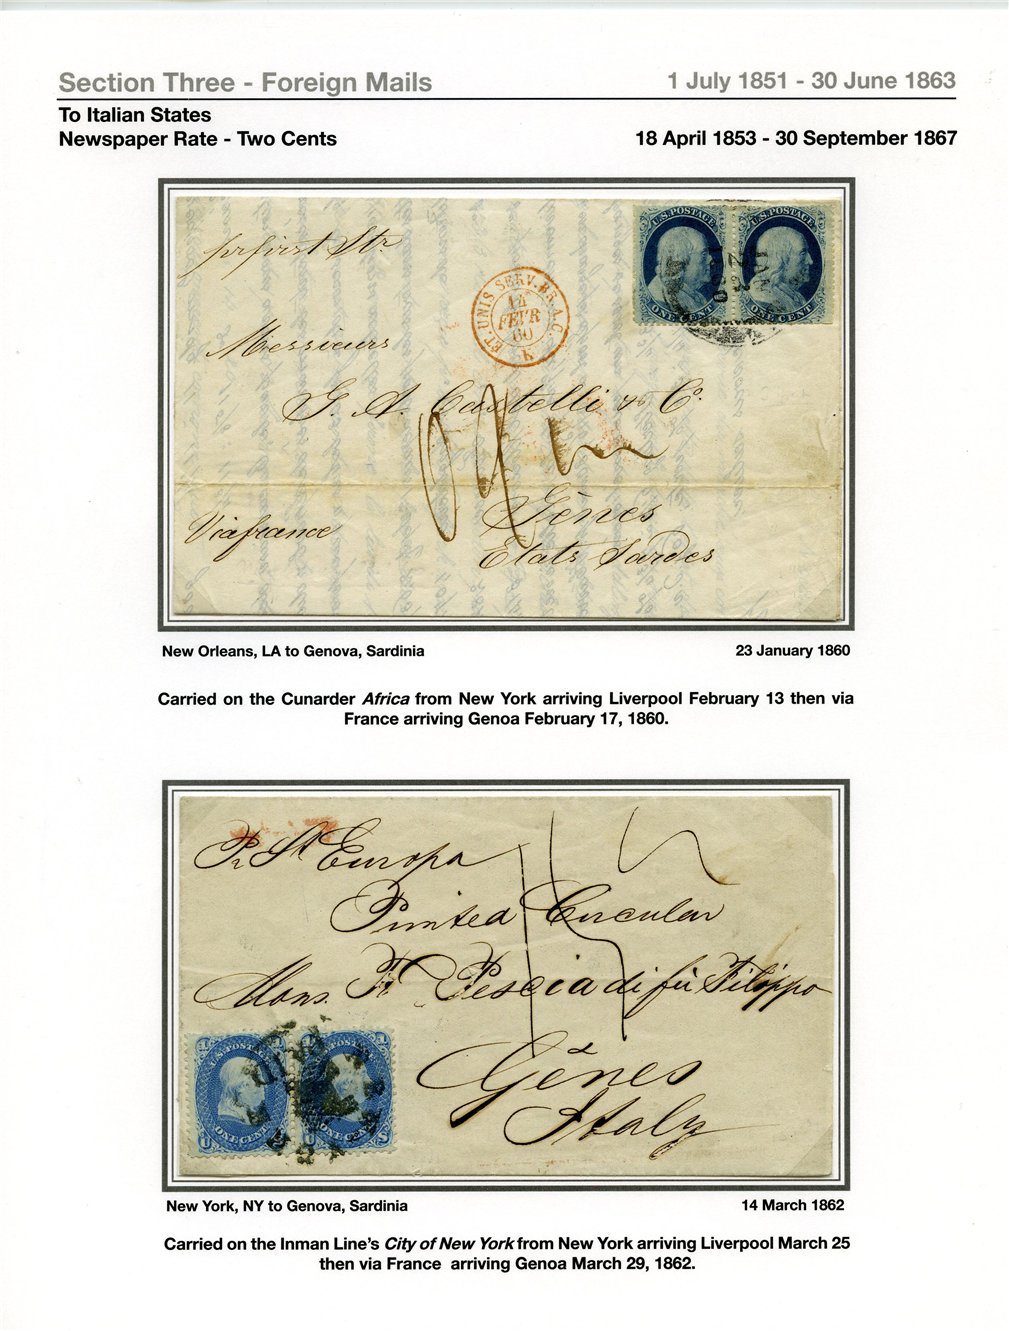 Section Three - Foreign Mails
1 July 1851 - 30 June 1863
To Italian States
Newspaper Rate - Two Cents
18 April 1853 - 30 September 1867
pr first Str.
U.S. POSTAGE
ONE CENT
U.S. POSTAGE
ONE CENT
ET. UNIS SERV. BR. A.C.
14
FEVR
60
K
Messieurs
G. A. Castelli & Co.
Gènes
Etats Sardes
Via france
New Orleans, LA to Genova, Sardinia
23 January 1860
Carried on the Cunarder Africa from New York arriving Liverpool February 13 then via
France arriving Genoa February 17, 1860.
Pr St Europa
Printed Circular
Mons. Pescia di fú Filippo
U.S. POSTAGE
ONE CENT
U.S. POSTAGE
ONE CENT
PAID
Gênes
Italy
New York, NY to Genova, Sardinia
14 March 1862
Carried on the Inman Line's City of New York from New York arriving Liverpool March 25
then via France arriving Genoa March 29, 1862.